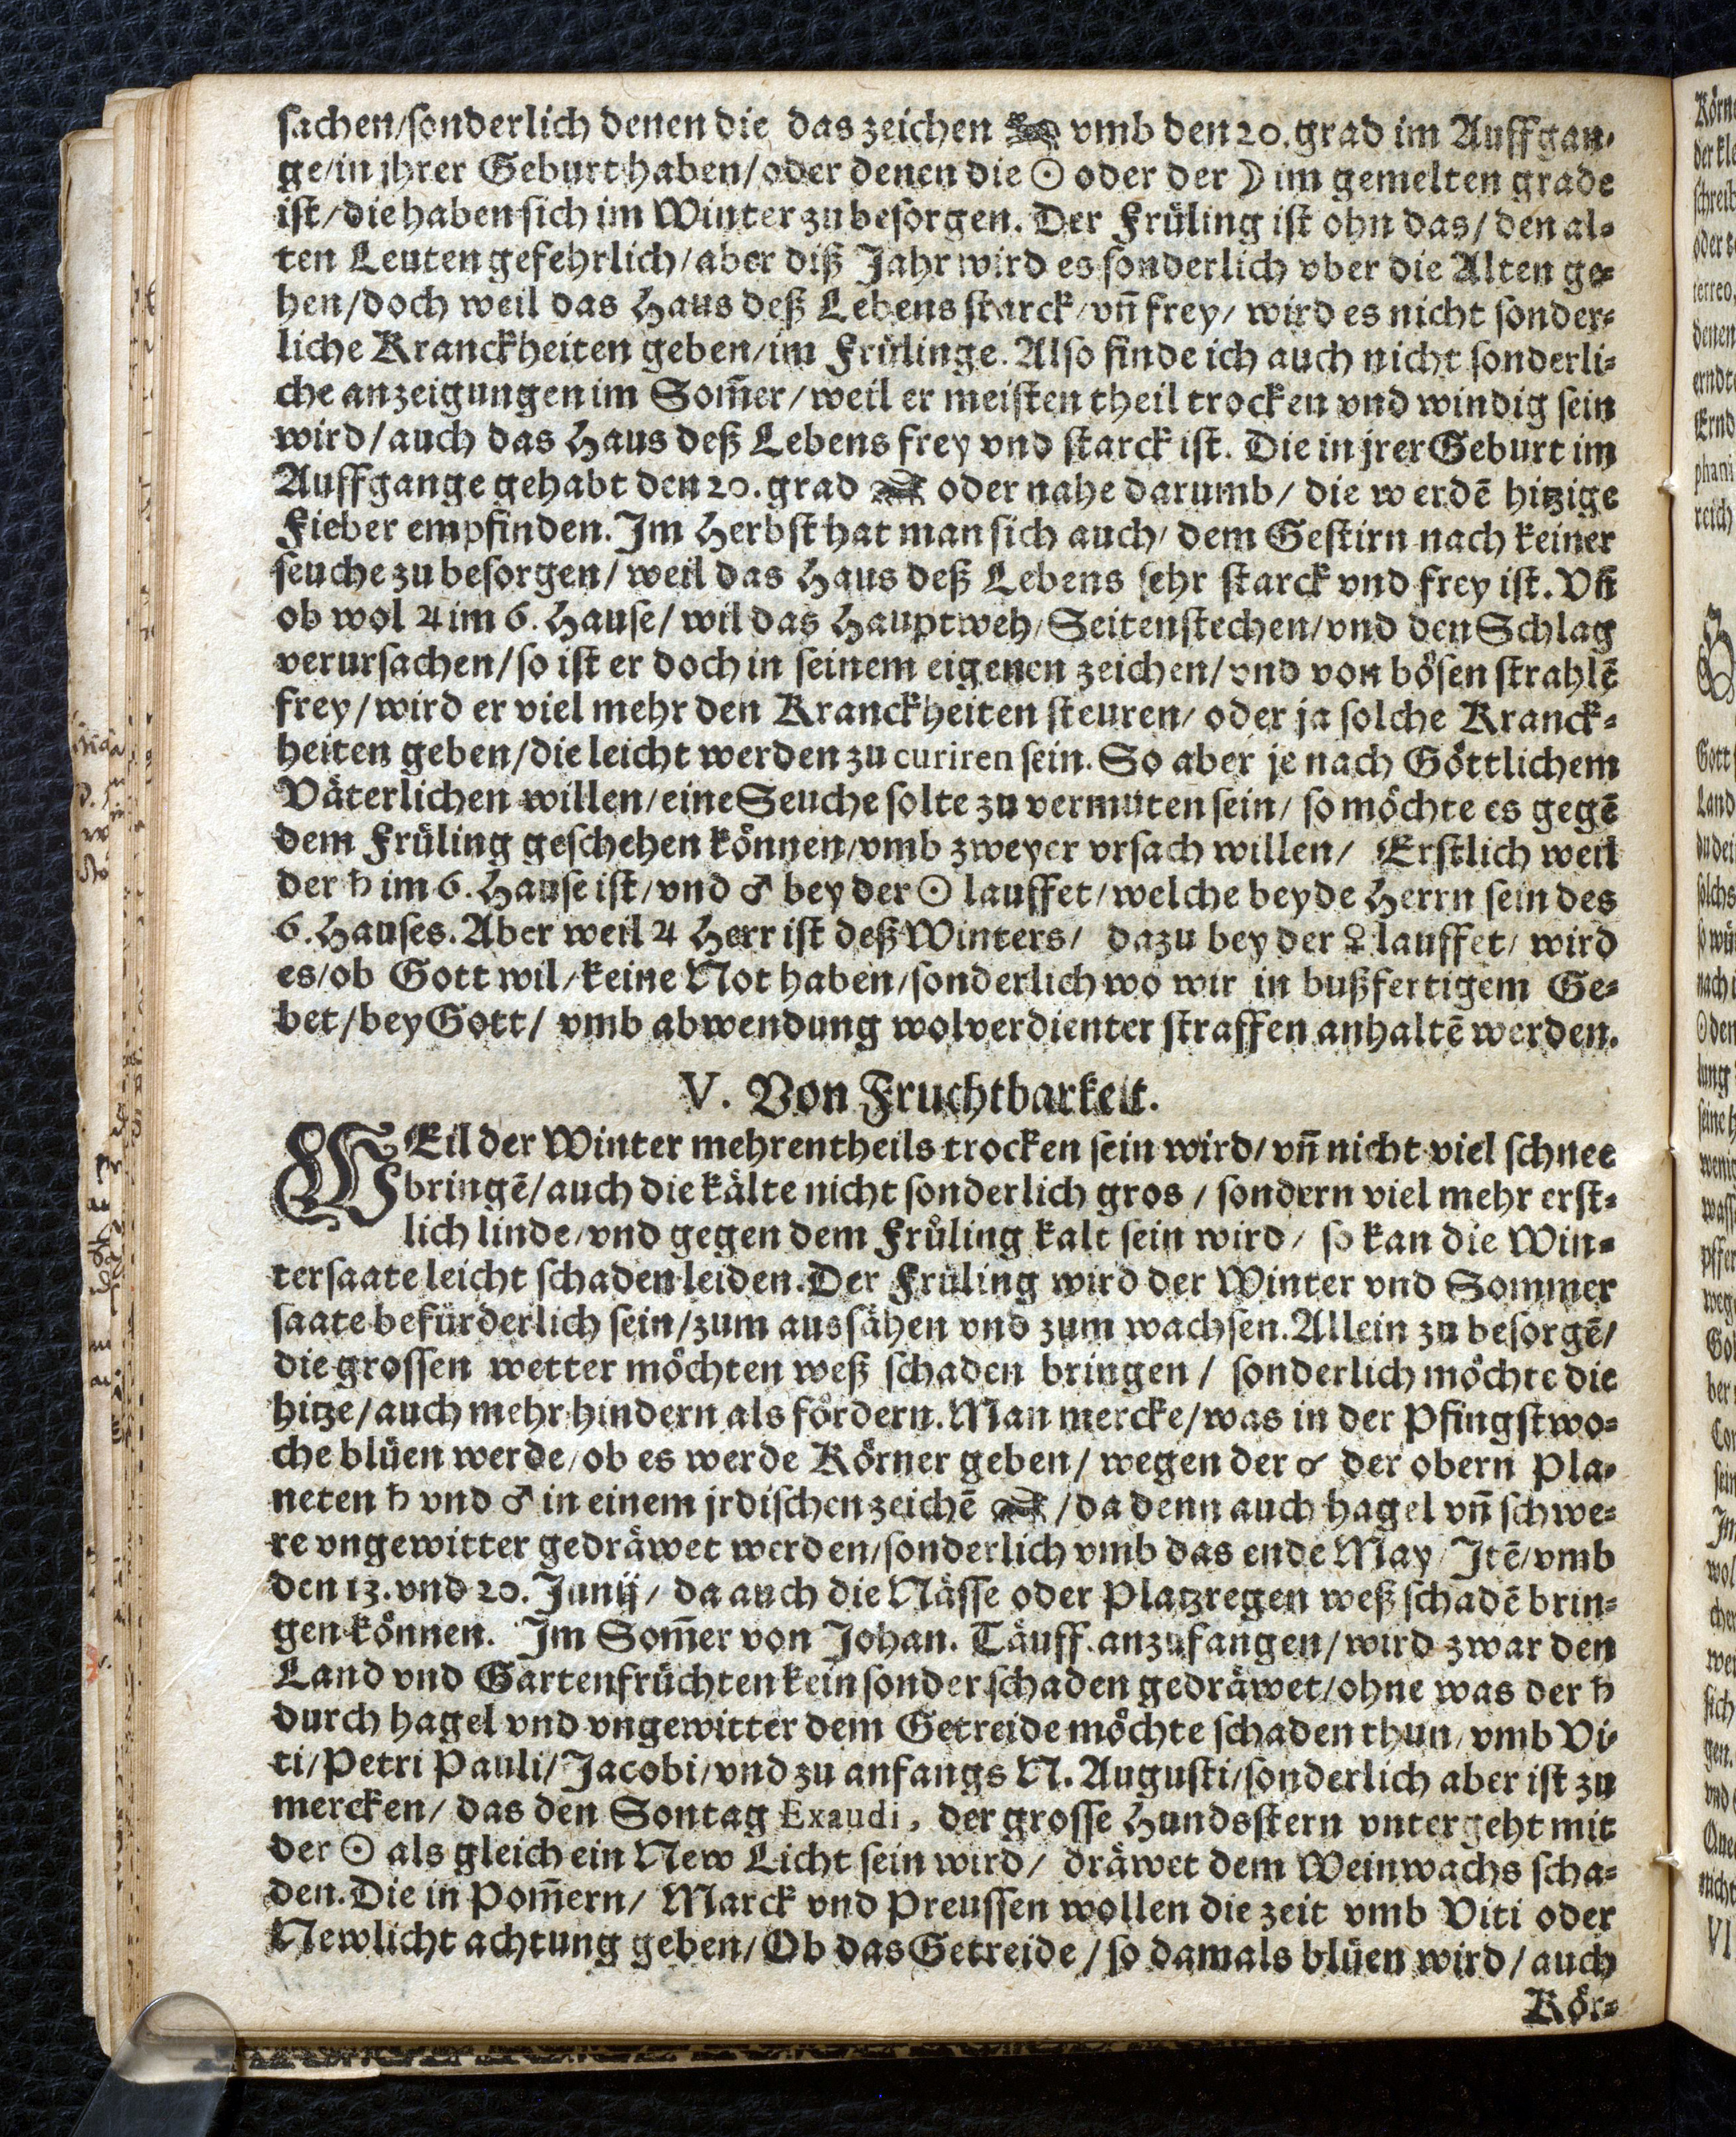 sachen/sonderlich denen die das zeichen vmb den 20. grad im Auffgan-
ge/in jhrer Geburt haben/oder denen die ☉ oder der ☽ im gemelten grade
ist/die haben sich im Winter zu besorgen. Der Früling ist ohn das/den al-
ten Leuten gefehrlich/aber diß Jahr wird es sonderlich vber die Alten ge-
hen/doch weil das Haus deß Lebens starck/vn̄ frey/ wird es nicht sonder-
liche Kranckheiten geben/im Frülinge. Also finde ich auch nicht sonderli-
che anzeigungen im Som̄er/weil er meisten theil trocken vnd windig sein
wird/auch das Haus deß Lebens frey vnd starck ist. Die in jrer Geburt im
Auffgange gehabt den 20. grad oder nahe darumb/ die werdē hitzige
Fieber empfinden. Im Herbst hat man sich auch/ dem Gestirn nach keiner
seuche zu besorgen/ weil das Haus deß Lebens sehr starck vnd frey ist. Vn̄
ob wol ♃ im 6. Hause/ wil das Hauptweh/Seitenstechen/vnd den Schlag
verursachen/so ist er doch in seinem eigenen zeichen/vnd von bösen strahlē
frey/wird er viel mehr den Kranckheiten steuren/ oder ja solche Kranck-
heiten geben/die leicht werden zu curiren sein. So aber je nach Göttlichem
Väterlichen willen/eine Seuche solte zu vermuten sein/ so möchte es gegē
dem Früling geschehen können/vmb zweyer vrsach willen/ Erstlich weil
der ♄ im 6. Hause ist/vnd ♂ bey der ☉ lauffet/welche beyde Herrn sein des
6. Hauses. Aber weil ♃ Herr ist deß Winters/ dazu bey der ♀ lauffet/ wird
es/ob Gott wil/keine Not haben/sonderlich wo wir in bußfertigem Ge-
bet/bey Gott/ vmb abwendung wolverdienter straffen anhaltē werden.
V. Von Fruchtbarkeit.
WEil der Winter mehrentheils trocken sein wird/vn̄ nicht viel schnee
bringē/auch die kälte nicht sonderlich gros/ sondern viel mehr erst-
lich linde/vnd gegen dem Früling kalt sein wird/ so kan die Win-
tersaate leicht schaden leiden. Der Früling wird der Winter vnd Sommer
saate befürderlich sein/zum aussähen vnd zum wachsen. Allein zu besorgē/
die grossen wetter möchten weß schaden bringen/ sonderlich möchte die
hitze/auch mehr hindern als fördern. Man mercke/was in der Pfingstwo-
che blüen werde/ob es werde Körner geben/ wegen der ☌ der obern Pla-
neten ♄ vnd ♂ in einem jrdischen zeichē /da denn auch hagel vn̄ schwe-
re vngewitter gedräwet werden/sonderlich vmb das ende May/Jtē/vmb
den 13. vnd 20. Junij/ da auch die Nässe oder Platzregen weß schadē brin-
gen können. Im Som̄er von Johan. Täuff. anzufangen/wird zwar den
Land vnd Gartenfrüchten kein sonder schaden gedräwet/ohne was der ♄
durch hagel vnd vngewitter dem Getreide möchte schaden thun/vmb Vi-
ti/Petri Pauli/Jacobi/vnd zu anfangs N. Augusti/sonderlich aber ist zu
mercken/ das den Sontag Exaudi, der grosse Hundsstern vntergeht mit
der ☉ als gleich ein New Licht sein wird/ dräwet dem Weinwachs scha-
den. Die in Pom̄ern/ Marck vnd Preussen wollen die zeit vmb Viti oder
Newlicht achtung geben/Ob das Getreide/so damals blüen wird/auch
Kör-